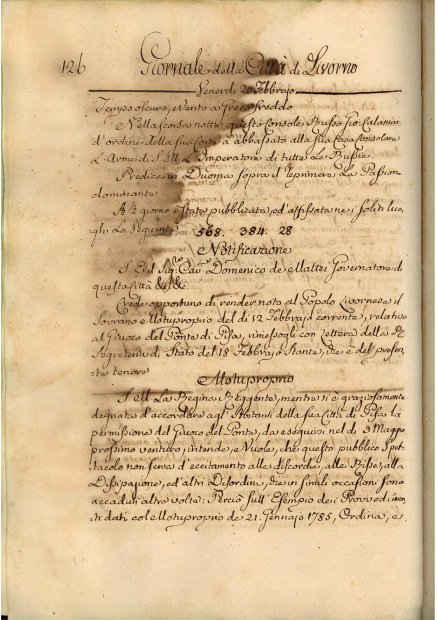 126 Giornale della Città di Livorno
Venerdì 20 Febbrajo
Tempo oscuro, e Vento a Greco freddo
Nella scorsa notte questo Console Russo Calamai
d'ordine della sua Corte a abbassato alla sua Casa Consolare
L'Arme di S. M. L'Imperatore di tutte Le Russie.
Predica in Duomo sopra il reprimere La Passion
dominante
A ½ giorno è stata pubblicata, ed affissata nei soliti luo,
ghi La Seguente 568. 384. 28
Notificazione
S. E. il Sig. Cav. Domenico de Mattei Governatore di
questa Città &c. &c.
Crede opportuno di render noto al Popolo Livornese il
Sovrano Motuproprio del dì 12 Febbrajo corrente, relativo
al Giuoco del Ponte di Pisa, rimessogli con Lettera della R.
Segreteria di Stato del 18 Febbrajo Stante, che è del presen,
te tenore
Motuproprio
S. M. La Regina Reggente, mentre si è graziosamente
degnata d'accordare agl' Abitanti della sua Città di Pisa la
permissione del Giuoco del Ponte, da eseguirsi nel dì 3 Maggio
prossimo venturo, intende, e Vuole, che questo pubblico Spet,
tacolo non serva d'eccitamento alle discordie, alle Risse, alla
Dissipazione, ed' altri Disordini, che in simili occasioni sono
accaduti altre volte: Perciò sull' Esempio dei Provvedimen,
ti dati col Motuproprio de 21. Gennajo 1785, Ordina, e